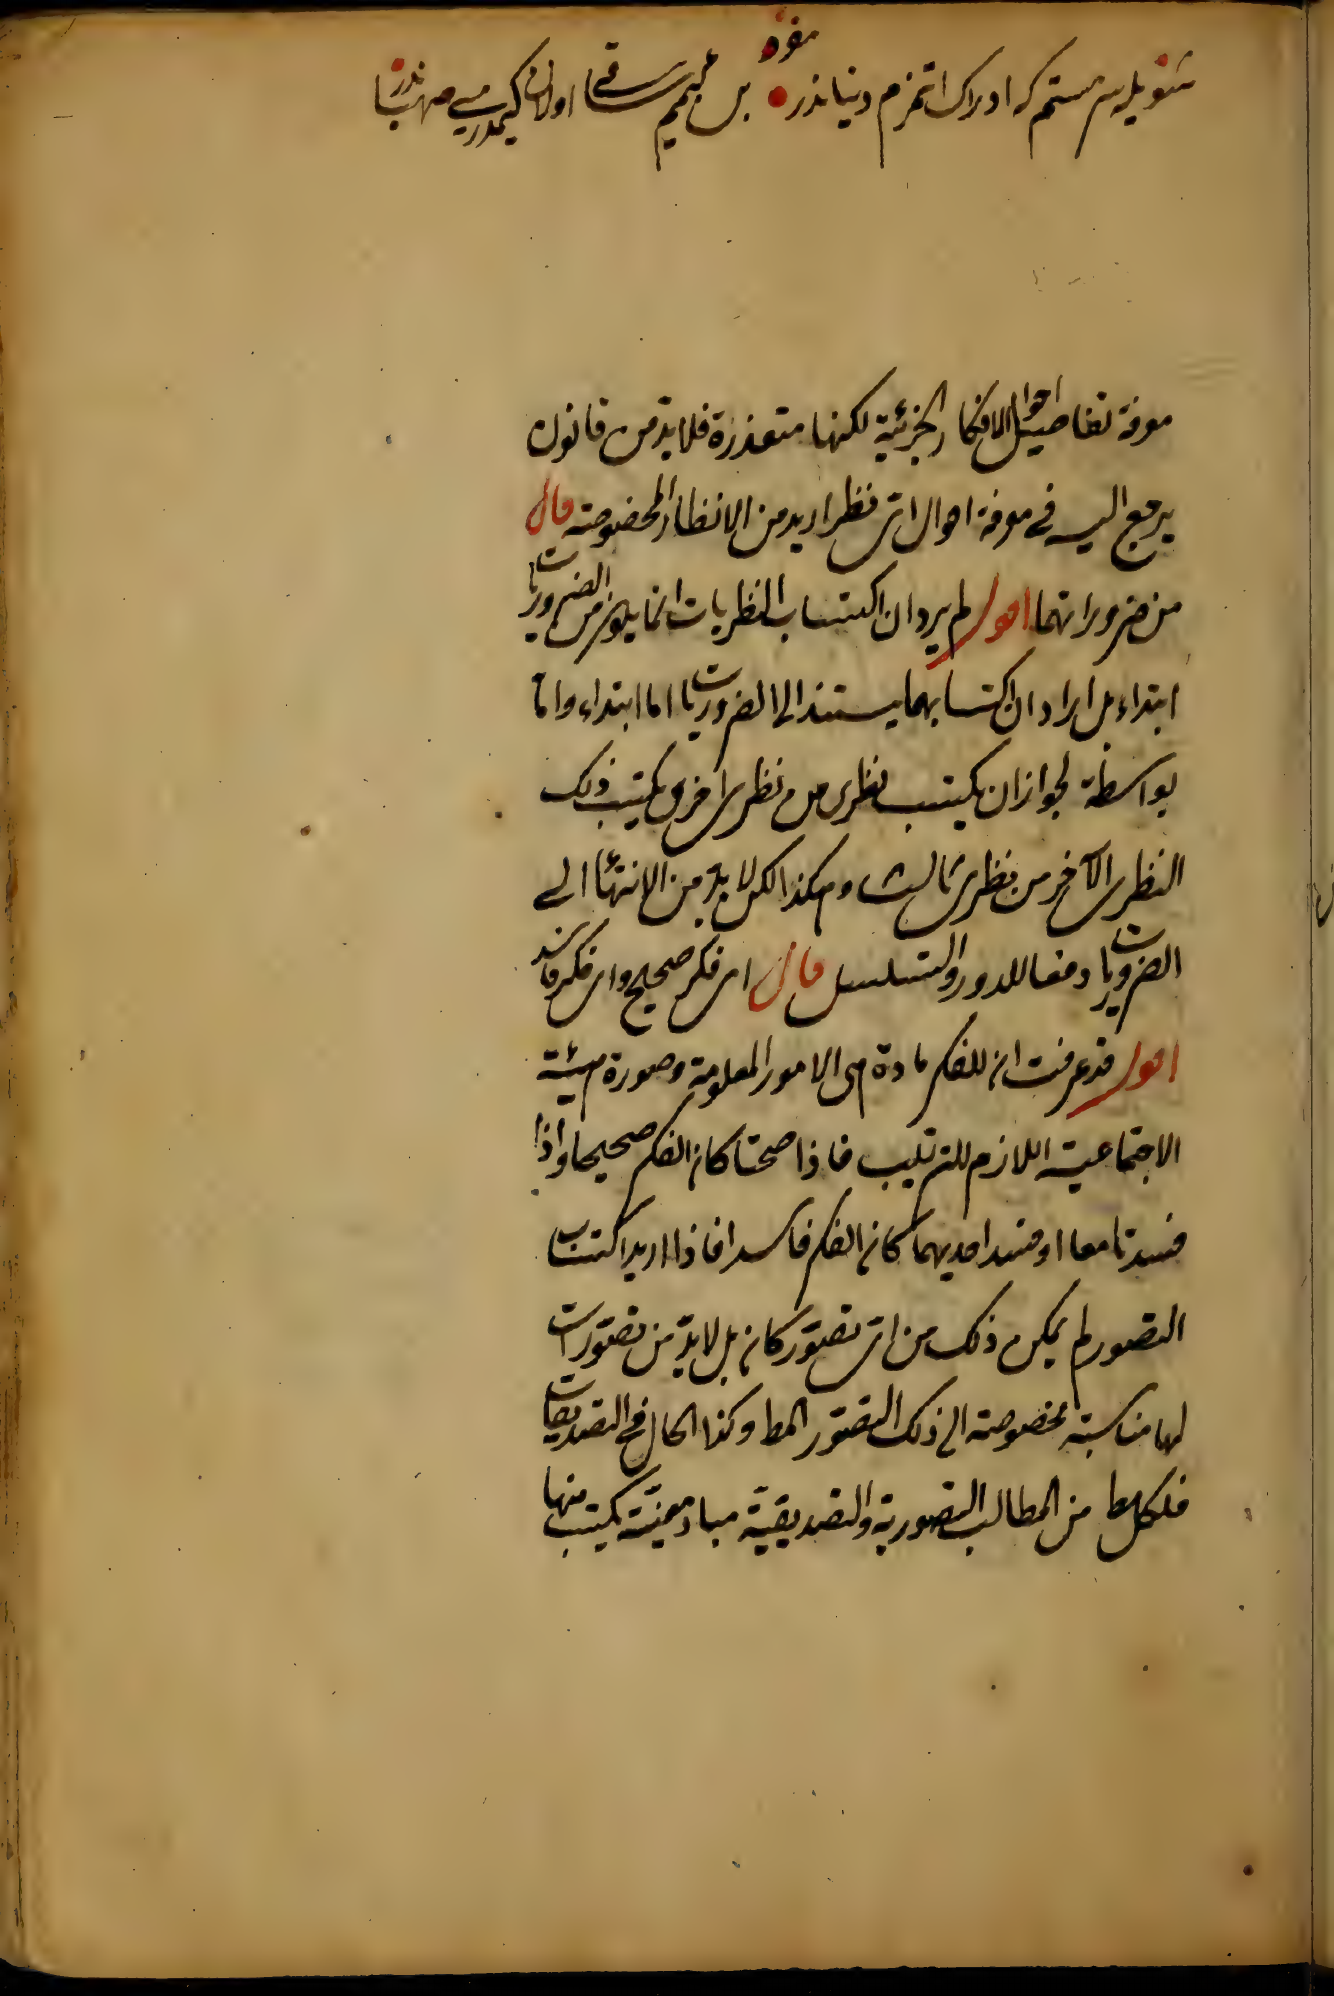 مفرد
شويله سرمستم كه ادراك اتمزم دنيا نذر بن كيمم ساقى اولان كيمدر مى صهبا نذر
معرفة تفاصيل احوال الافكار الجزئية لكنها متعذرة فلا بد من قانون
يرجع اليه فى معرفة احوال اىّ نظر اريد من الانظار المخصوصة قال
من ضروراتهما اقول لم يرد ان اكتساب النظريات انما يكون من الضروريات
ابتداء بل اراد ان اكتسابهما يستند الى الضروريات اما ابتداء واما
بواسطة لجواز ان يكتسب نظرى من نظرى آخر ويكتسب ذلك
النظرى الآخر من نظرى ثالث وهكذا لكن لا بدّ من الانتهاء الى
الضروريات دفعا للدور والتسلسل قال اى فكر صحيح واى فكر فاسد
اقول قد عرفت ان للفكر مادة هى الامور المعلومة وصورة هى الهيئة
الاجتماعية اللازم للترتيب فاذا صحتا كان الفكر صحيحا واذا
فسدتا معا او فسد احديهما كان الفكر فاسدا فاذا اريد اكتساب
التصور لم يمكن ذلك من اىّ تصوّر كان بل لا بدّ من تصوّرات
لها مناسبة مخصوصة الى ذلك التصوّر المط وكذا الحال فى التصديقات
فلكل مط من المطالب التصورية والتصديقيّة مباد معيّنة يكتسب منها